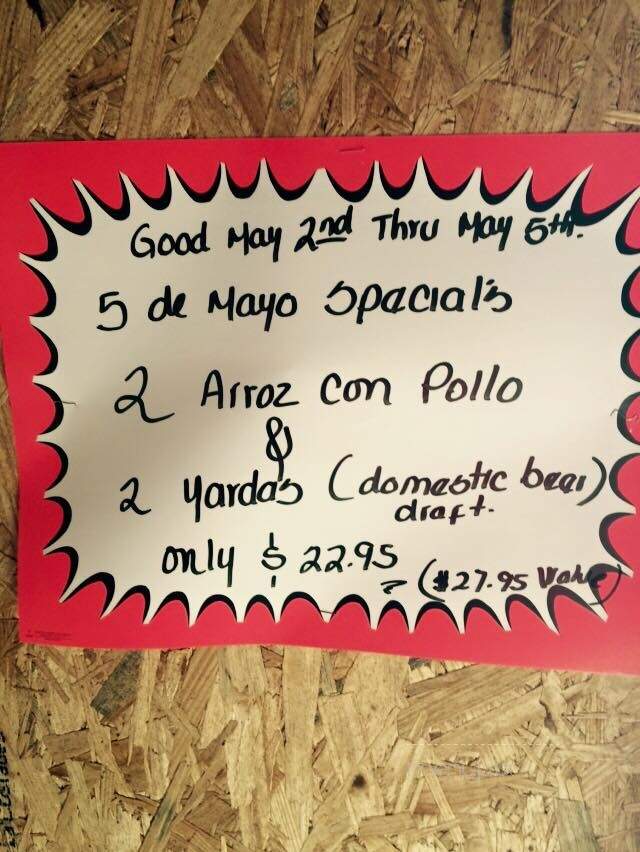 Good May 2nd Thru May 5th.
5 de Mayo Spacial's
2 Arroz con Pollo
&
2 Yarda's (domestic beer)
draft.
only $ 22.95
($27.95 Value)